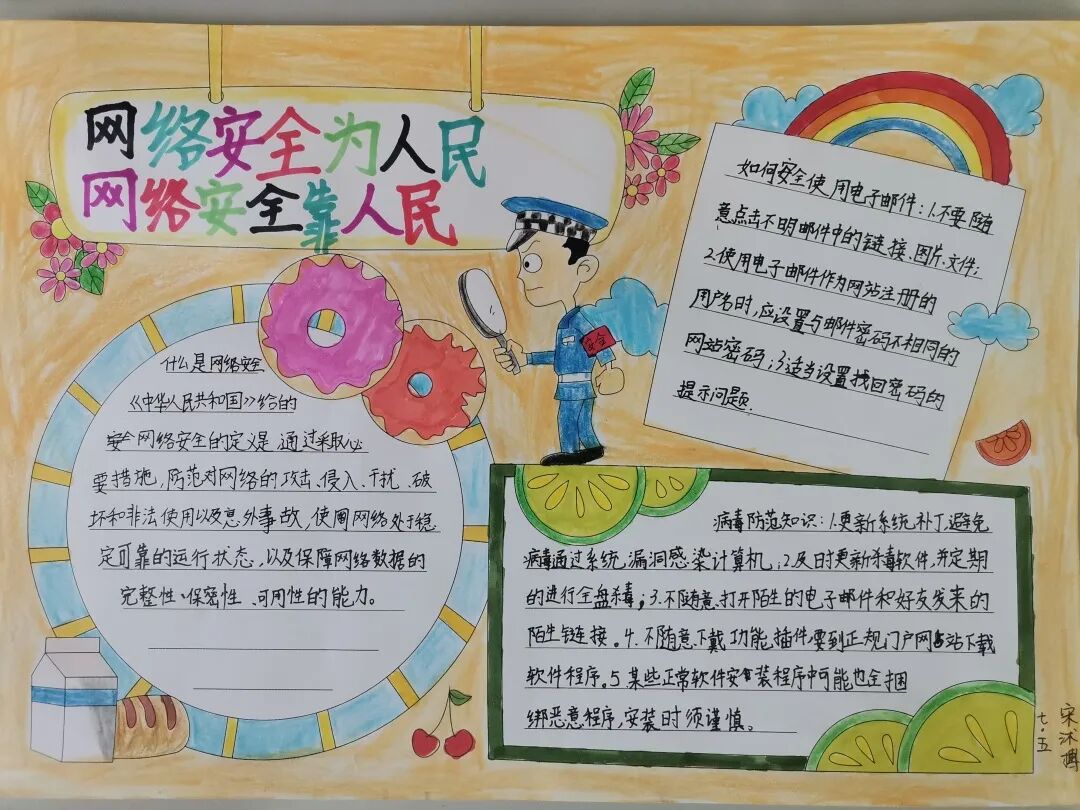 网络安全为人民
网络安全靠人民
安全
什么是网络安全
《中华人民共和国》给的
安全网络安全的定义是通过采取心
要措施，防范对网络的攻击、侵入、干扰、破
坏和非法使用以及意外事故，使用网络处于稳
定可靠的运行状态，以及保障网络数据的
完整性、保密性、可用性的能力。
如何安全使用电子邮件：1.不要随
意点击不明邮件中的链接、图片、文件；
2.使用电子邮件作为网站注册的
用户名时，应设置与邮件密码不相同的
网站密码；3.适当设置找回密码的
提示问题.
病毒防范知识：1.更新系统补丁，避免
病毒通过系统漏洞感染计算机；2.及时更新杀毒软件，并定期
的进行全盘杀毒；3.不随意打开陌生的电子邮件和好友发来的
陌生链接。4.不随意下载功能插件，要到正规门户网站下载
软件程序。5.某些正常软件安装程序中可能也会捆
绑恶意程序，安装时须谨慎。
七.五
宋沐